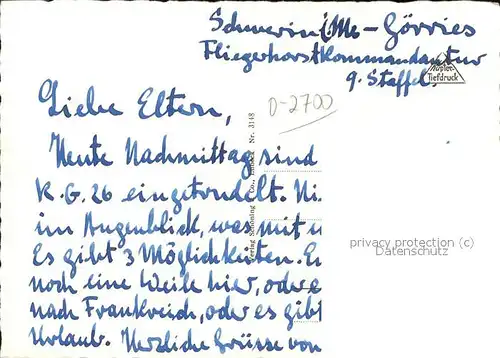 Schwerin i/Me - Görries
Fliegerhorstkommandantur
9. Staffel.
Kupfer-
Tiefdruck
D-2700
Liebe Eltern,
Heute Nachmittag sind
K.G. 26 eingetrudelt. Ni
im Augenblick, was mit u
Es gibt 3 Möglichkeiten. E
noch eine Weile hier, oder
nach Frankreich, oder es gibt
Urlaub. Herzliche Grüsse von
Schöning & Co., Lübeck Nr. 3148
privacy protection (c)
Datenschutz